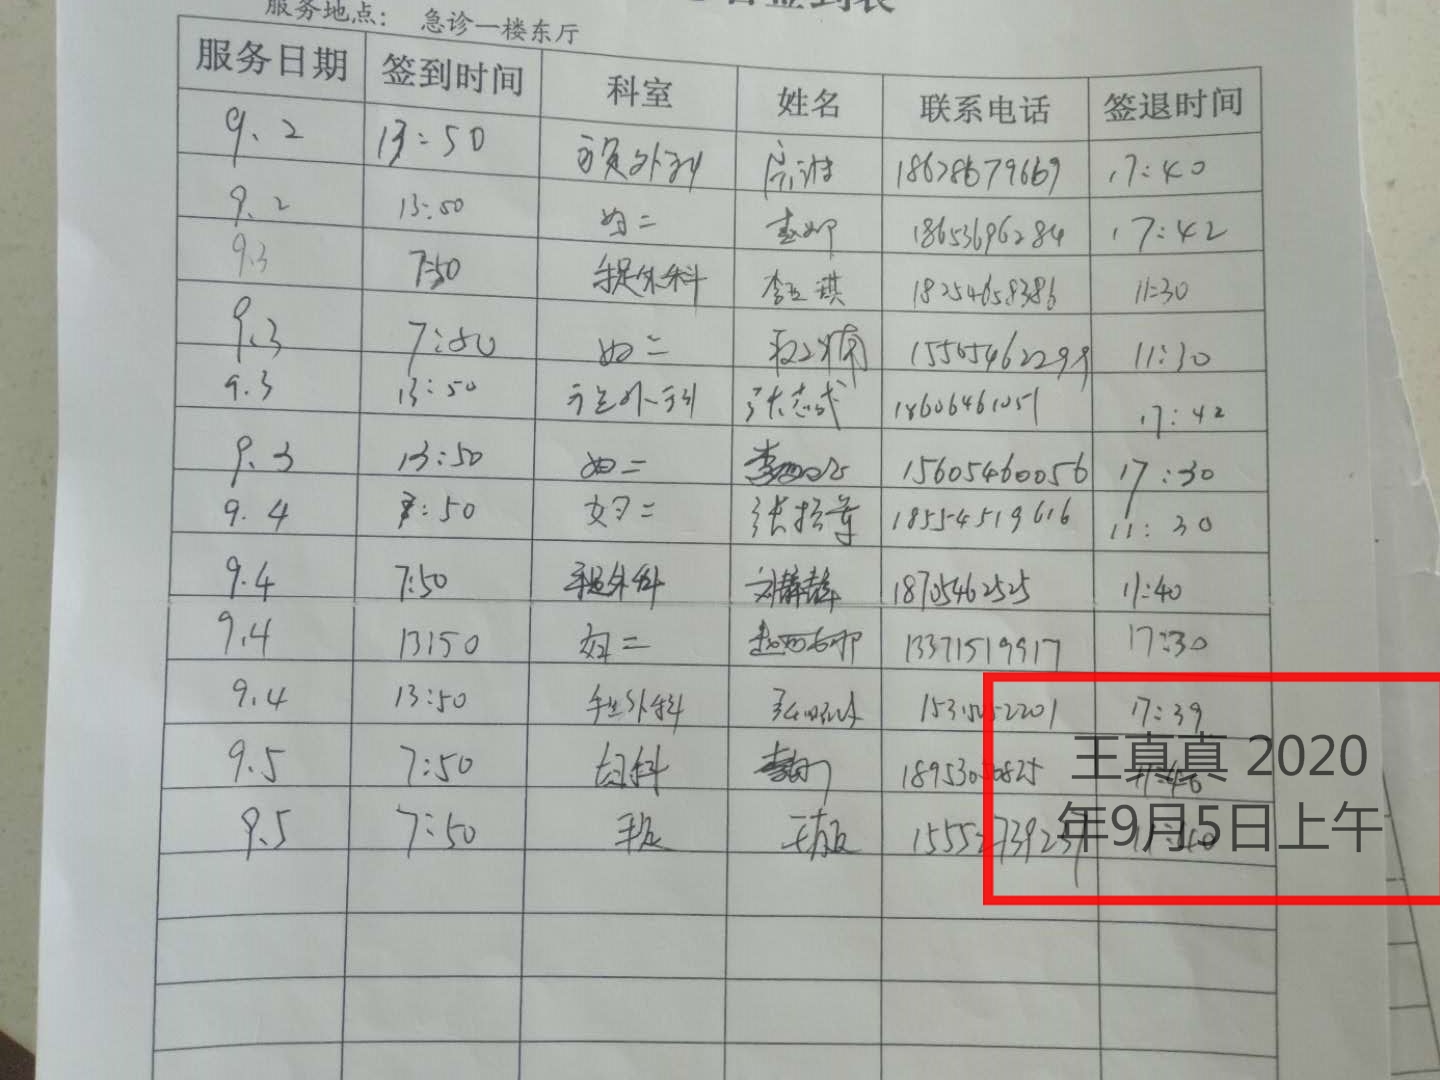 服务地点： 急诊一楼东厅
服务日期 签到时间 科室 姓名 联系电话 签退时间
9.2 13:50 18628679669 17:40
9.2 13:50 妇二 18653696284 17:42
9.3 7:50 手足外科 李亚琪 18254658386 11:30
9.3 7:50 妇二 15505462299 11:30
9.3 13:50 手足外科 张志成 18606461051 17:42
9.3 13:50 妇二 15605460056 17:30
9.4 7:50 妇二 18554519616 11:30
9.4 7:50 手足外科 刘静静 18705462525 11:40
9.4 13:50 妇二 13371519917 17:30
9.4 13:50 手足外科 17:39
9.5 7:50 妇科 11:40
9.5 7:50 手足 11:40
王真真 2020
年9月5日上午